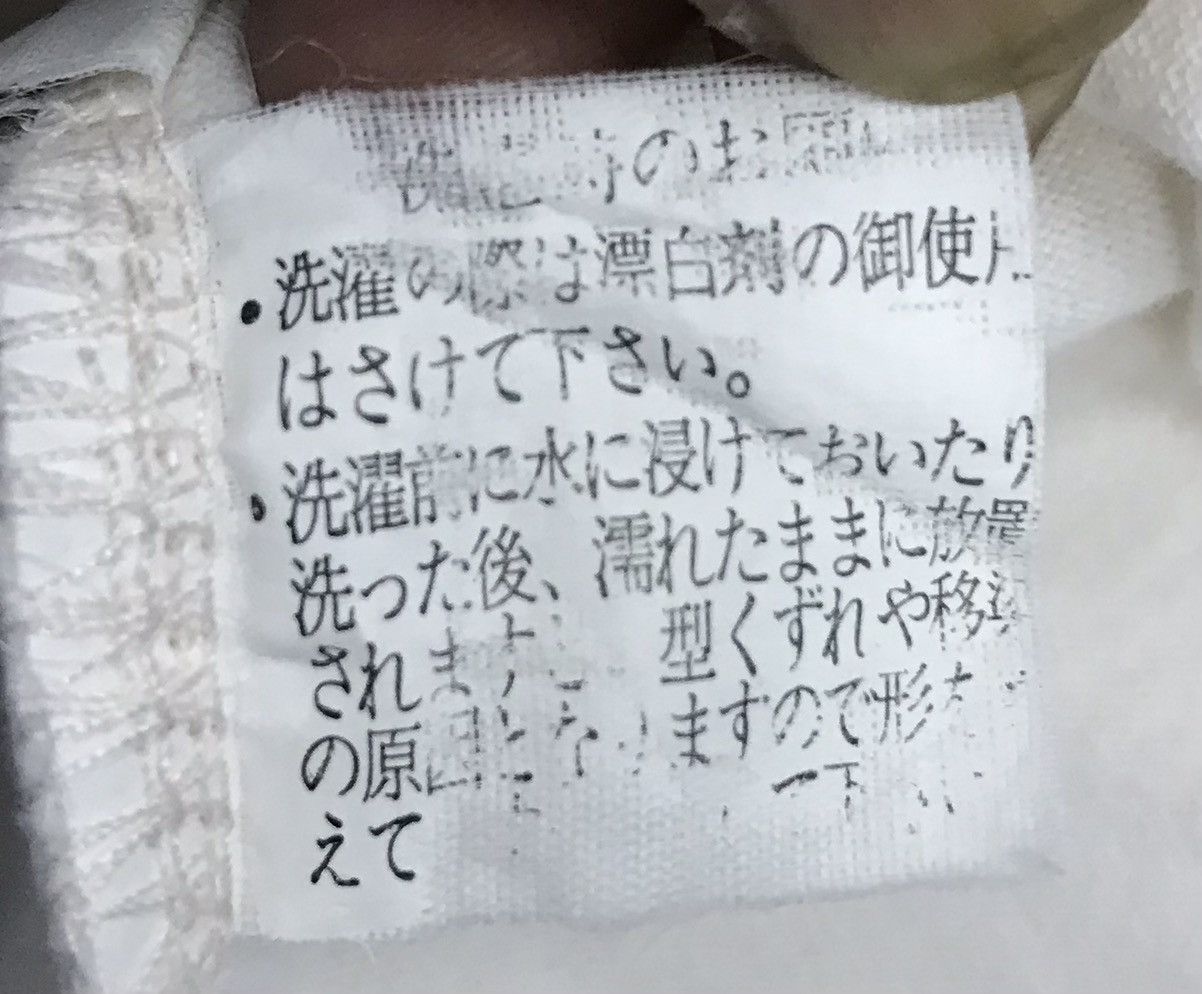 のお
・洗濯の際は漂白剤の御使用
はさけて下さい。
・洗濯前に水に浸けておいたり
洗った後、濡れたままに放置
されますと 型くずれや移染
の原因となりますので形を
えて 下さい